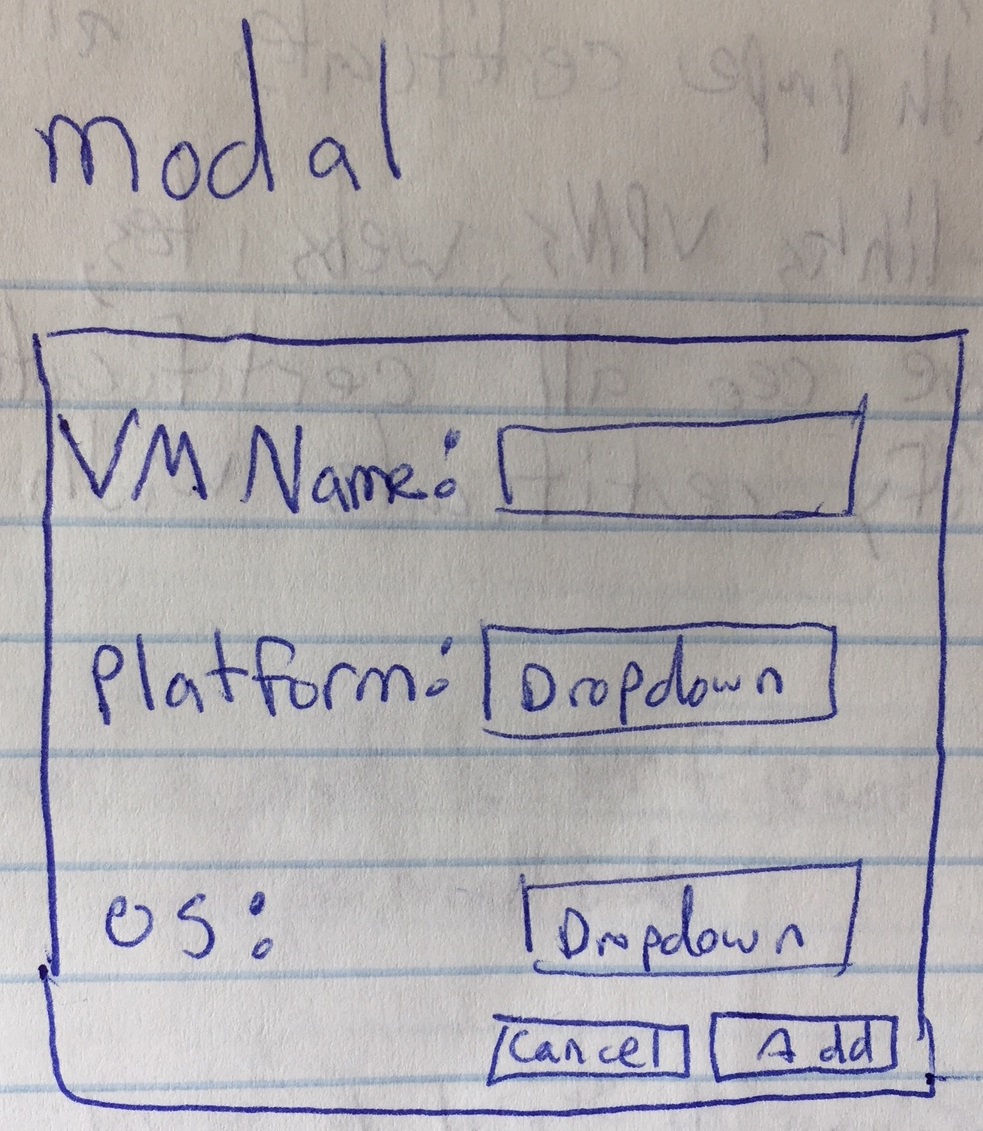 modal
VM Name:
Platform: Dropdown
OS: Dropdown
Cancel Add